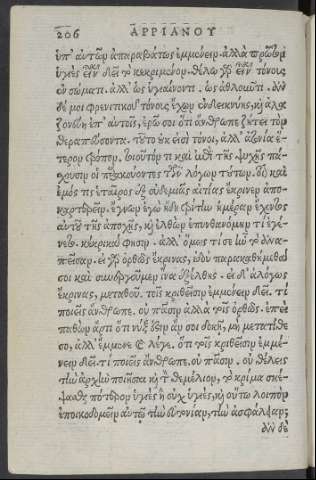 206 ΑΡΡΙΑΝΟΥ
ὑπ' αὐτῶν ἀπαραβάτως ἐμμένειν. ἀλλὰ πρῶτον
ὑγιὲς εἶναι δεῖ τὸ κεκριμένον. θέλω γὰρ εἶναι τόνους
ἐν σώματι. ἀλλ' ὡς ὑγιαίνοντι. ὡς ἀθλοῦντι. ἂν
δέ μοι φρενιτικοῦ τόνους ἔχων ἐνδεικνύῃς, καὶ ἀλα
ζονεύῃ ἐπ' αὐτοῖς, ἐρῶ σοι ὅτι ἄνθρωπε ζήτει τὸν
θεραπεύσοντα. τοῦτο οὐκ εἰσὶ τόνοι, ἀλλ' ἀτονία ἕ-
τερον τρόπον. τοιοῦτόν τι καὶ ἐπὶ τῆς ψυχῆς πά-
χουσιν οἱ παρακούοντες τῶν λόγων τούτων. οἷς καὶ
ἐμός τις ἑταῖρος ἐξ οὐδεμιᾶς αἰτίας ἔκρινεν ἀπο-
καρτερεῖν. ἔγνων ἐγὼ ἤδη τρίτην ἡμέραν ἔχοντος
αὐτοῦ τῆς ἀποχῆς, καὶ ἐλθὼν ἐπυνθανόμην τί ἐγέ-
νετο. κέκρικα φησιν. ἀλλ' ὅμως τί σε ἦν τὸ ἀνα-
πεῖσαν. εἰ γὰρ ὀρθῶς ἔκρινας, ἰδοὺ παρακαθήμεθά
σοι καὶ συνεργοῦμεν ἵνα ἐξέλθῃς. εἰ δ' ἀλόγως
ἔκρινας, μετάθου. τοῖς κριθεῖσιν ἐμμένειν δεῖ. τί
ποιεῖς ἄνθρωπε. οὐ πᾶσιν ἀλλὰ τοῖς ὀρθῶς. ἐπεὶ
παθὼν ἄρτι ὅτι νύξ ἐστιν ἄν σοι δοκῇ, μὴ μετατίθε
σο, ἀλλ' ἔμμενε καὶ λέγε. ὅτι τοῖς κριθεῖσιν ἐμμέ-
νειν δεῖ. τί ποιεῖς ἄνθρωπε. οὐ πᾶσιν. οὐ θέλεις
τὴν ἀρχὴν ποιῆσαι καὶ τὸν θεμέλιον, τὸ κρίμα σκέ-
ψασθαι πότερον ὑγιὲς ἢ οὐχ ὑγιές, καὶ οὕτω λοιπὸν
ἐποικοδομεῖν αὐτῷ τὴν εὐτονίαν, τὴν ἀσφάλειαν;
ἂν δὲ